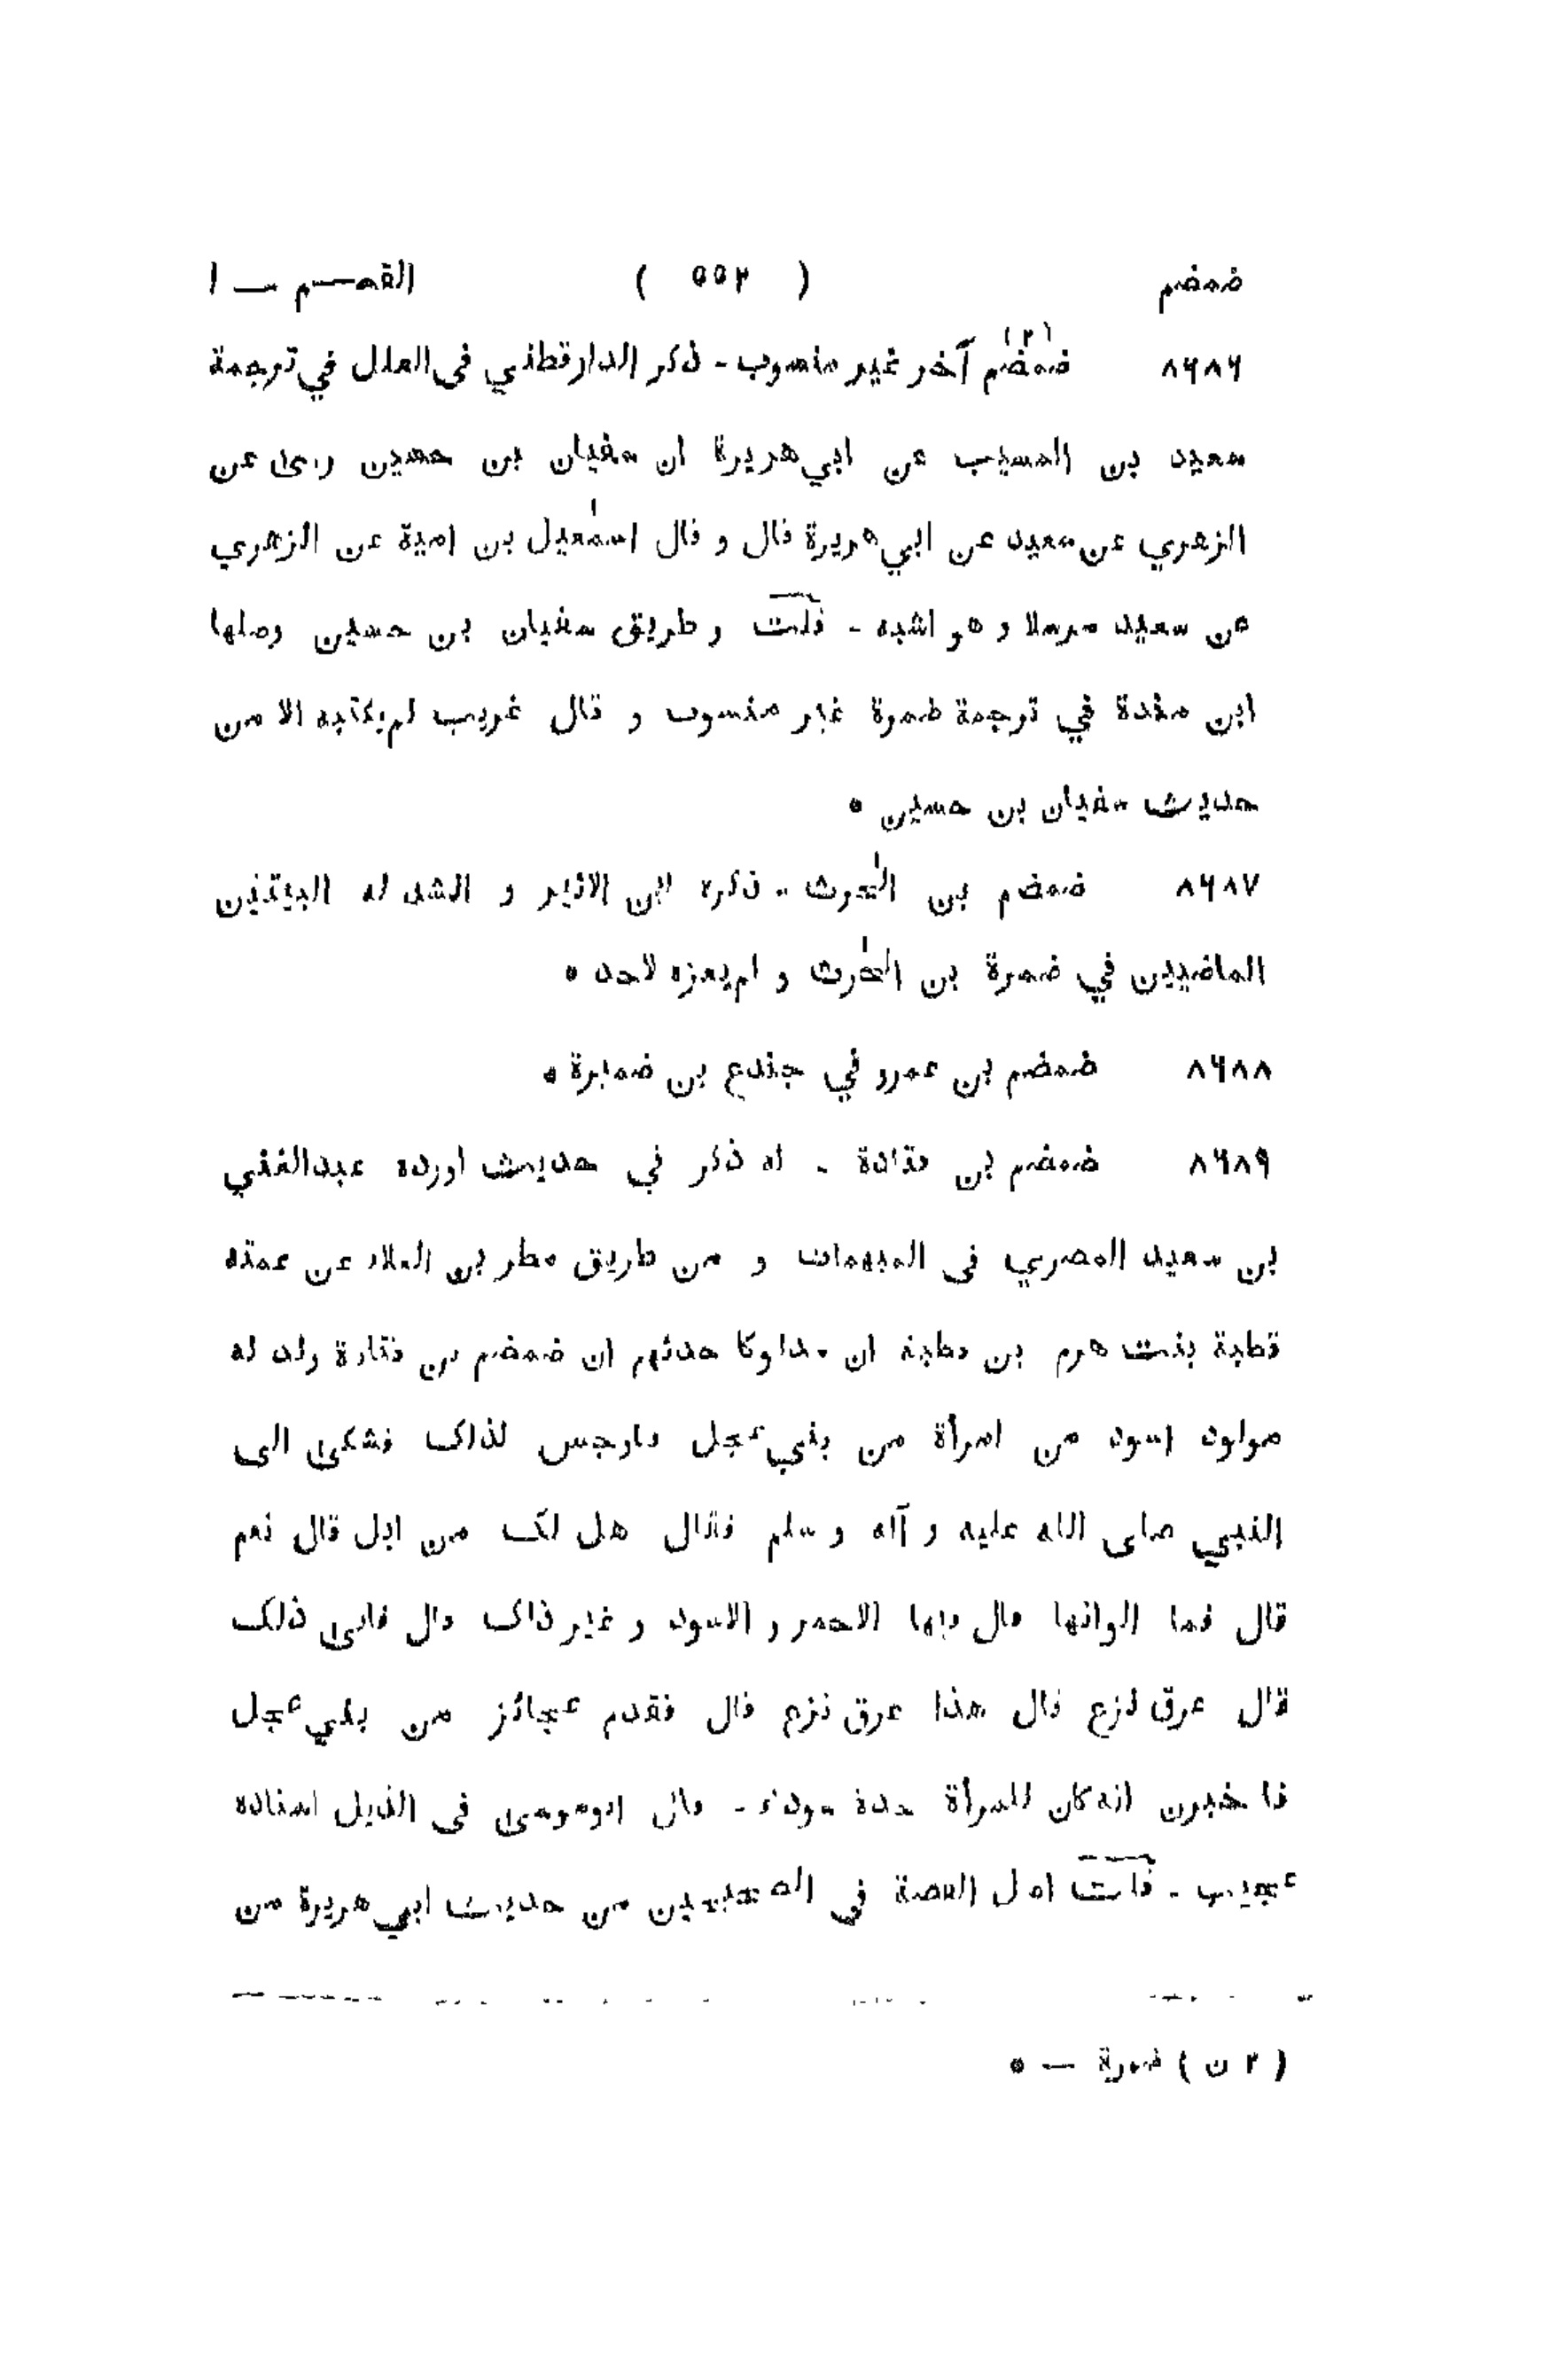 ضمضم ( ٥٥٢ ) القسم — ١
٨٦٨٦ ضمضم (٢) آخر غير منسوب - ذكر الدارقطني فى العلل في ترجمة
سعيد بن المسيب عن ابي هريرة ان سفيان بن حسين روى عن
الزهري عن سعيد عن ابي هريرة قال و قال اسمٰعيل بن امية عن الزهري
عن سعيد مرسلا و هو اشبه - قلت و طريق سفيان بن حسين وصلها
ابن مندة في ترجمة ضمرة غير منسوب و قال غريب لم يكتبه الا من
حديث سفيان بن حسين *
٨٦٨٧ ضمضم بن الحٰرث - ذكره ابن الاثير و انشد له البيتين
الماضيين في ضمرة بن الحٰرث و لم يعزه لاحد *
٨٦٨٨ ضمضم بن عمرو في جندع بن ضميرة *
٨٦٨٩ ضمضم بن قتادة - له ذكر في حديث اورده عبدالغني
بن سعيد المصري فى المبهمات و من طريق مطر بن العلاء عن عمته
قطبة بنت هرم بن قطبة ان مدلوكا حدثهم ان ضمضم بن قتادة ولد له
مولود اسود من امرأة من بني عجل فاوجس لذلك فشكى الى
النبي صلى الله عليه و آله و سلم فقال هل لك من ابل قال نعم
قال فما الوانها قال فيها الاحمر و الاسود و غير ذلك قال فانى ذلك
قال عرق نزع قال هذا عرق نزع قال فقدم عجائز من بني عجل
فاخبرن انه كان للمرأة جدة سوداء - قال ابوموسى فى الذيل اسناده
عجيب - قلت اصل القصة فى الصحيحين من حديث ابي هريرة من
( ٢ ن ) ضمرة — *